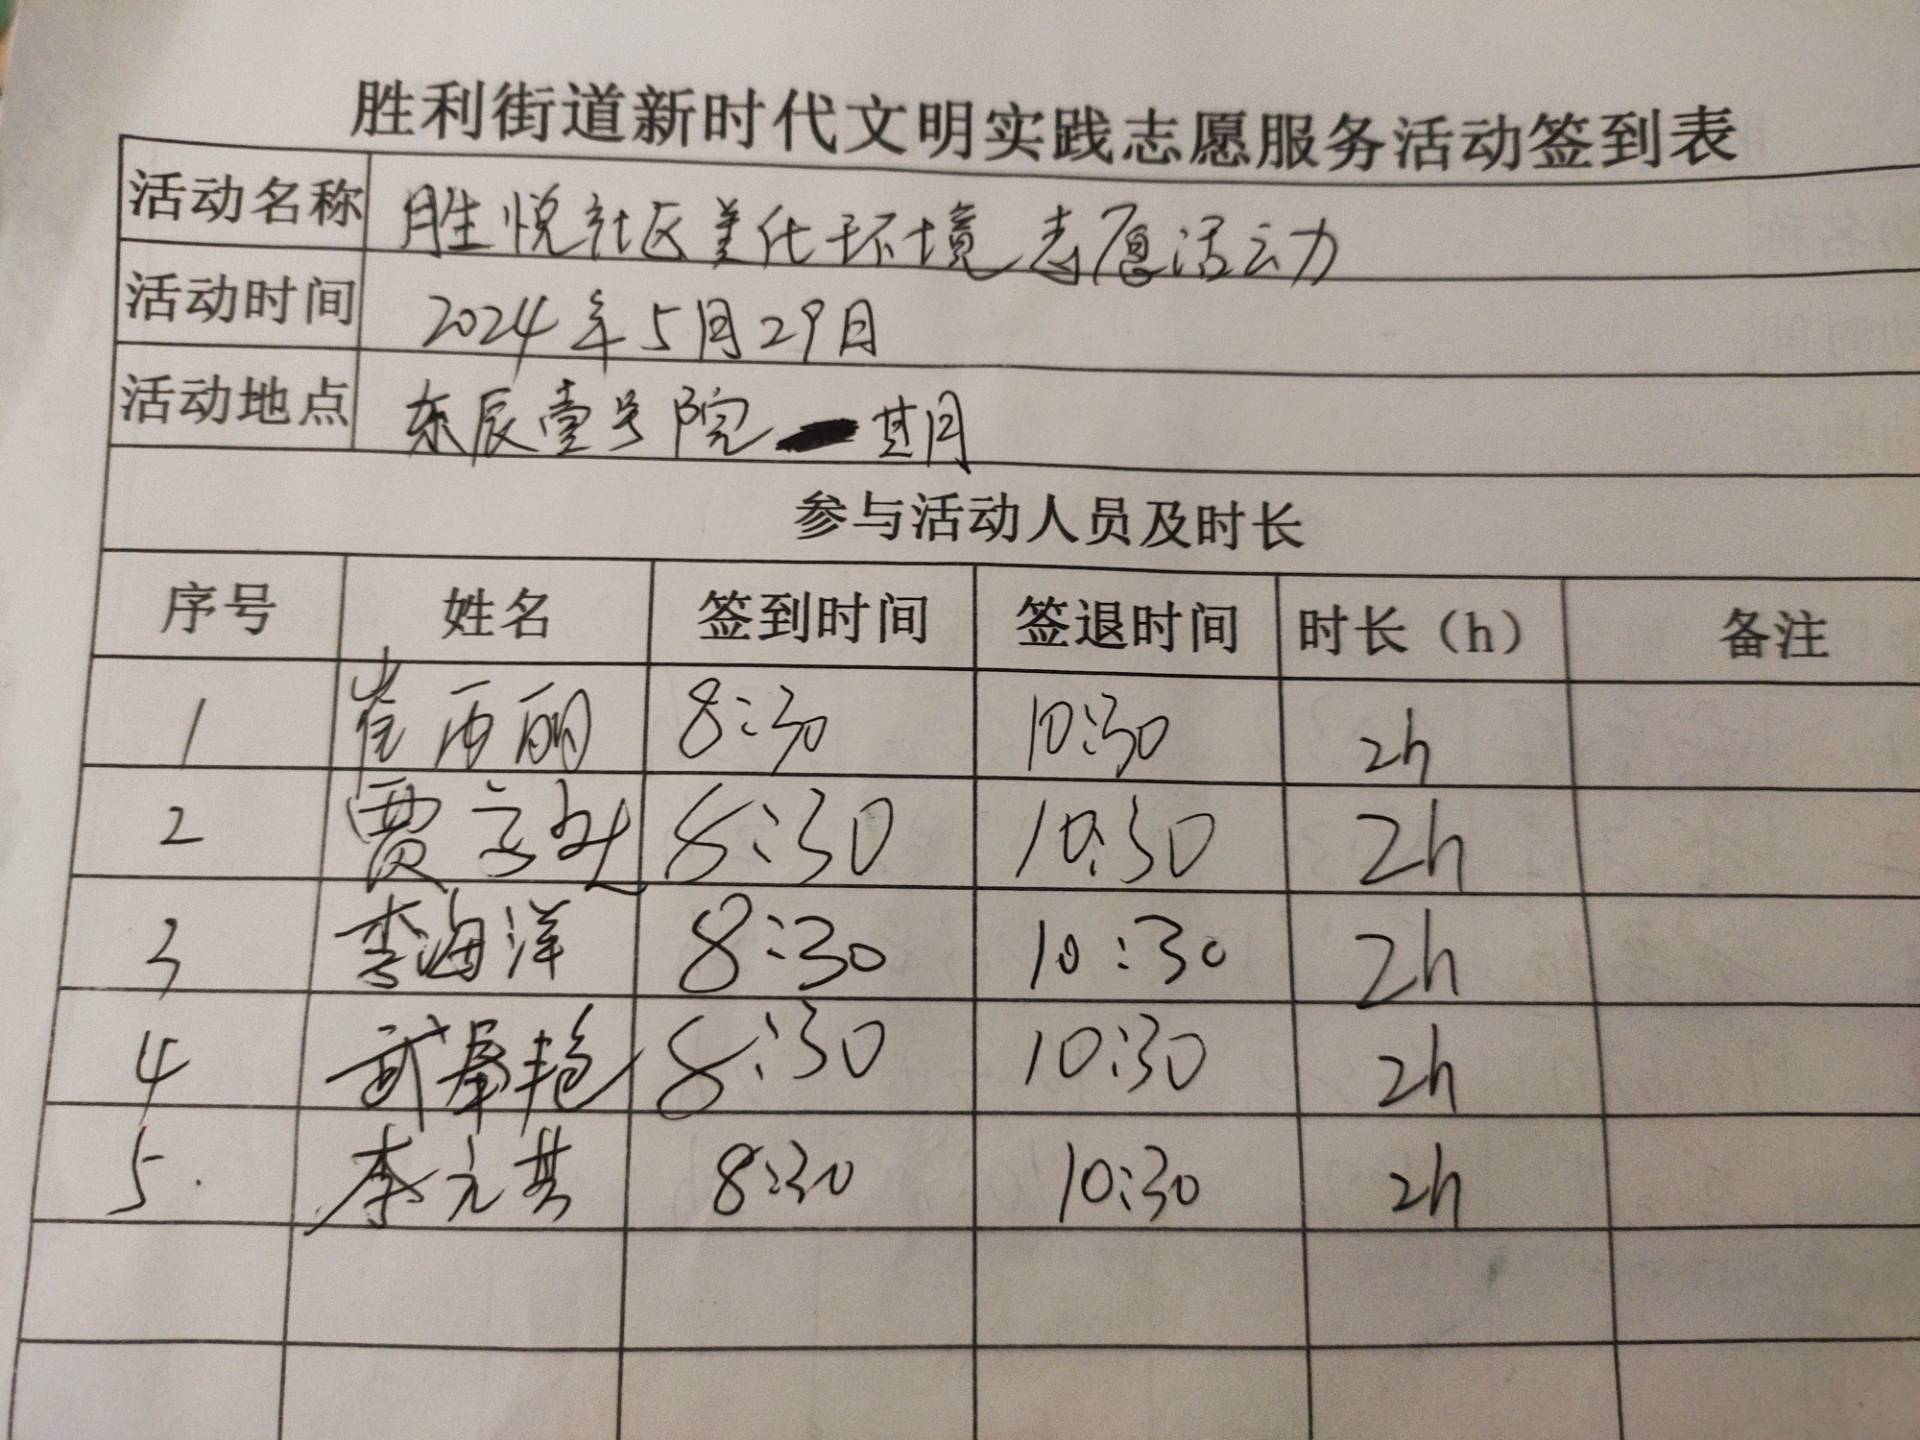 胜利街道新时代文明实践志愿服务活动签到表
活动名称 胜悦社区美化环境志愿活动
活动时间 2024年5月29日
活动地点 东辰壹号院 一期
参与活动人员及时长
序号 姓名 签到时间 签退时间 时长（h） 备注
1 崔西丽 8:30 10:30 2h
2 贾 8:30 10:30 2h
3 李海洋 8:30 10:30 2h
4 武春艳 8:30 10:30 2h
5. 李元其 8:30 10:30 2h